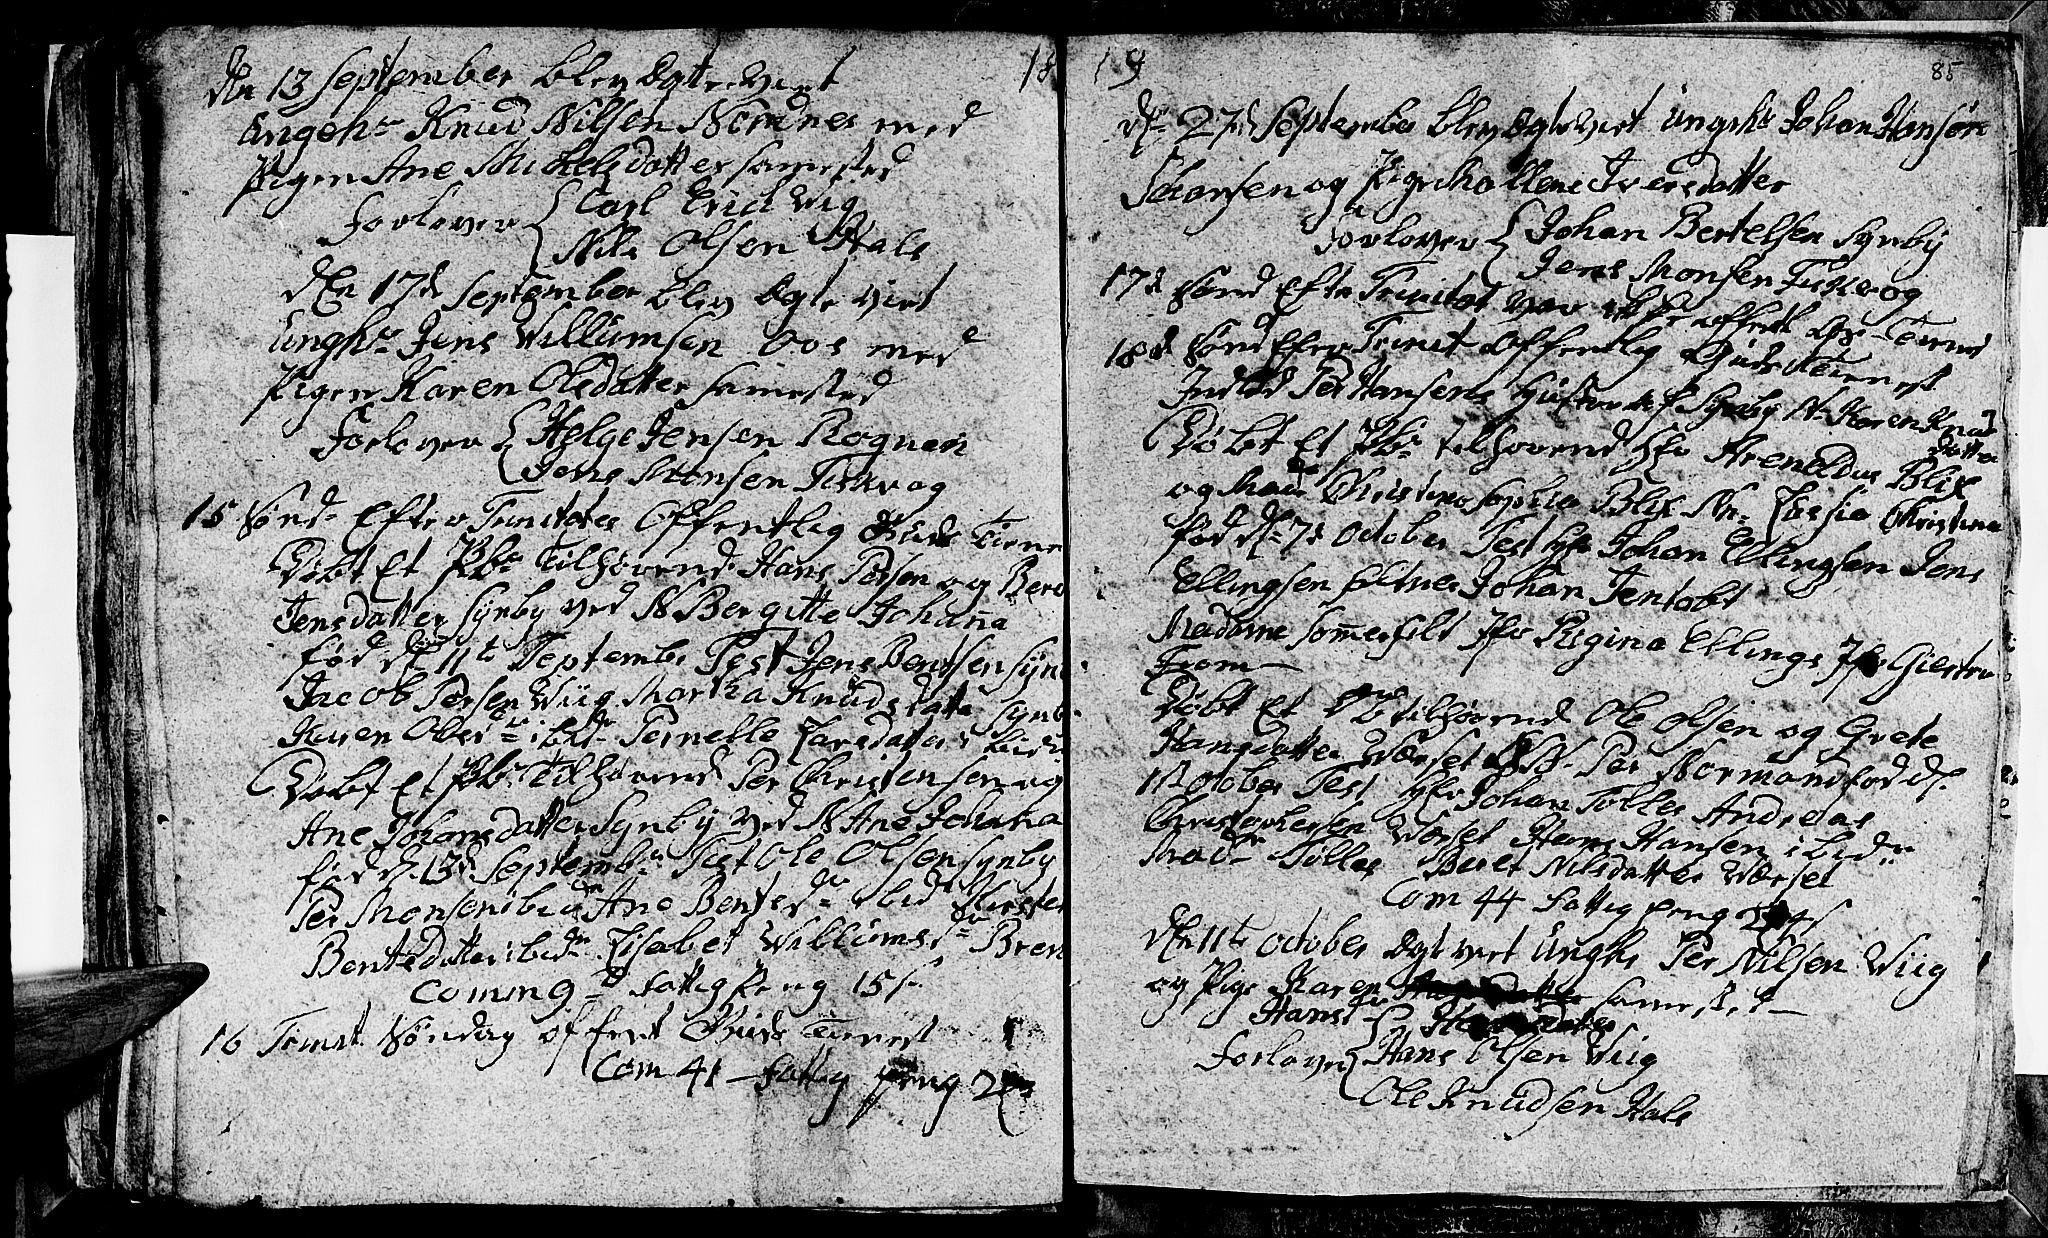 18
dn 13 September blev Ægte viet
Ungekr Knud Nilsen Nordnes med
Pigen Ane Mickelsdatter samested
Forlover Carl Erich Wig
Nils Olsen Hals
den 17d September blev Ægte viet
Ungkr Jens Willumsen Vos med
Pigen Karen Olsdatter samested
Forlover Helge Jensen Rognan
Jens Monsen Fiskvog
15 Sønd Efter Trinitates Offentlig Guds Tiene
Døbt Et Pb Tilhørend Hans Persen og Bere
Jensdatter Synby ved N Bergitte Johana
fød d 11te September Test Jens Bentsen Syn
Jacob Persen Wiig Martha Knudsdatte
Karen Olsd ibid Pernelle Larsdatter Synb
Døbt Et Pb Tilhørend Per Christensen og
Ane Johansdatter Synby ved N Ane Johana
fød d 13d Septemb Test Ole Olsen Synby
Per Monsen ibid Ane Bentsd ibid Kirsten
Bentsdatter ibidm Elsabet Willums Bren
Coming Fattig Peng 15 s
16 Trinit Søndag offent Guds Tienest
Com 41 Fattig peng
19
85
d 27d September blev Ægteviet Ungkr Johan Hansøn
Johansen og Pige Mallene Iversdatter
Forlover Johan Bertelsen Synby
Jens Monsen Fiskvog
17d Sønd Efte Trinitat var ikke offentl Gs Tienst
18d Sønd Efter Trinit Offentlig Guds Tienest
Indled Per Hansens Hustrue af Synby N Karen Knud
datter
Døbt Et Pb tilhørend Hr Arenoldus Blix
og Mad Christina Sophia Blix N Zosia Christina
fød d 7d October Test Hr Johan Ellingsen Jens
Ellingsen Johan Jentoft
Madame Sommerfelt Jfr Regina Ellings Jfr Giertru
From
Døbt Et Db tilhørend Ole Olsen og Grete
Hansdatter Værset N Per Normand fød d
1t October Test Hr Johan Tolles Andreas
Christophersen Worset Hans Hansen ibidm
Mad Tølles Beret Nilsdatter Værset
Com 44 Fattig peng
den 11te October Ægtviet Ungkr Per Nilsen Wiig
og Pige Karen samested
Hansd
Forlover Hans Olsen Wiig
Ole Knudsen Hals